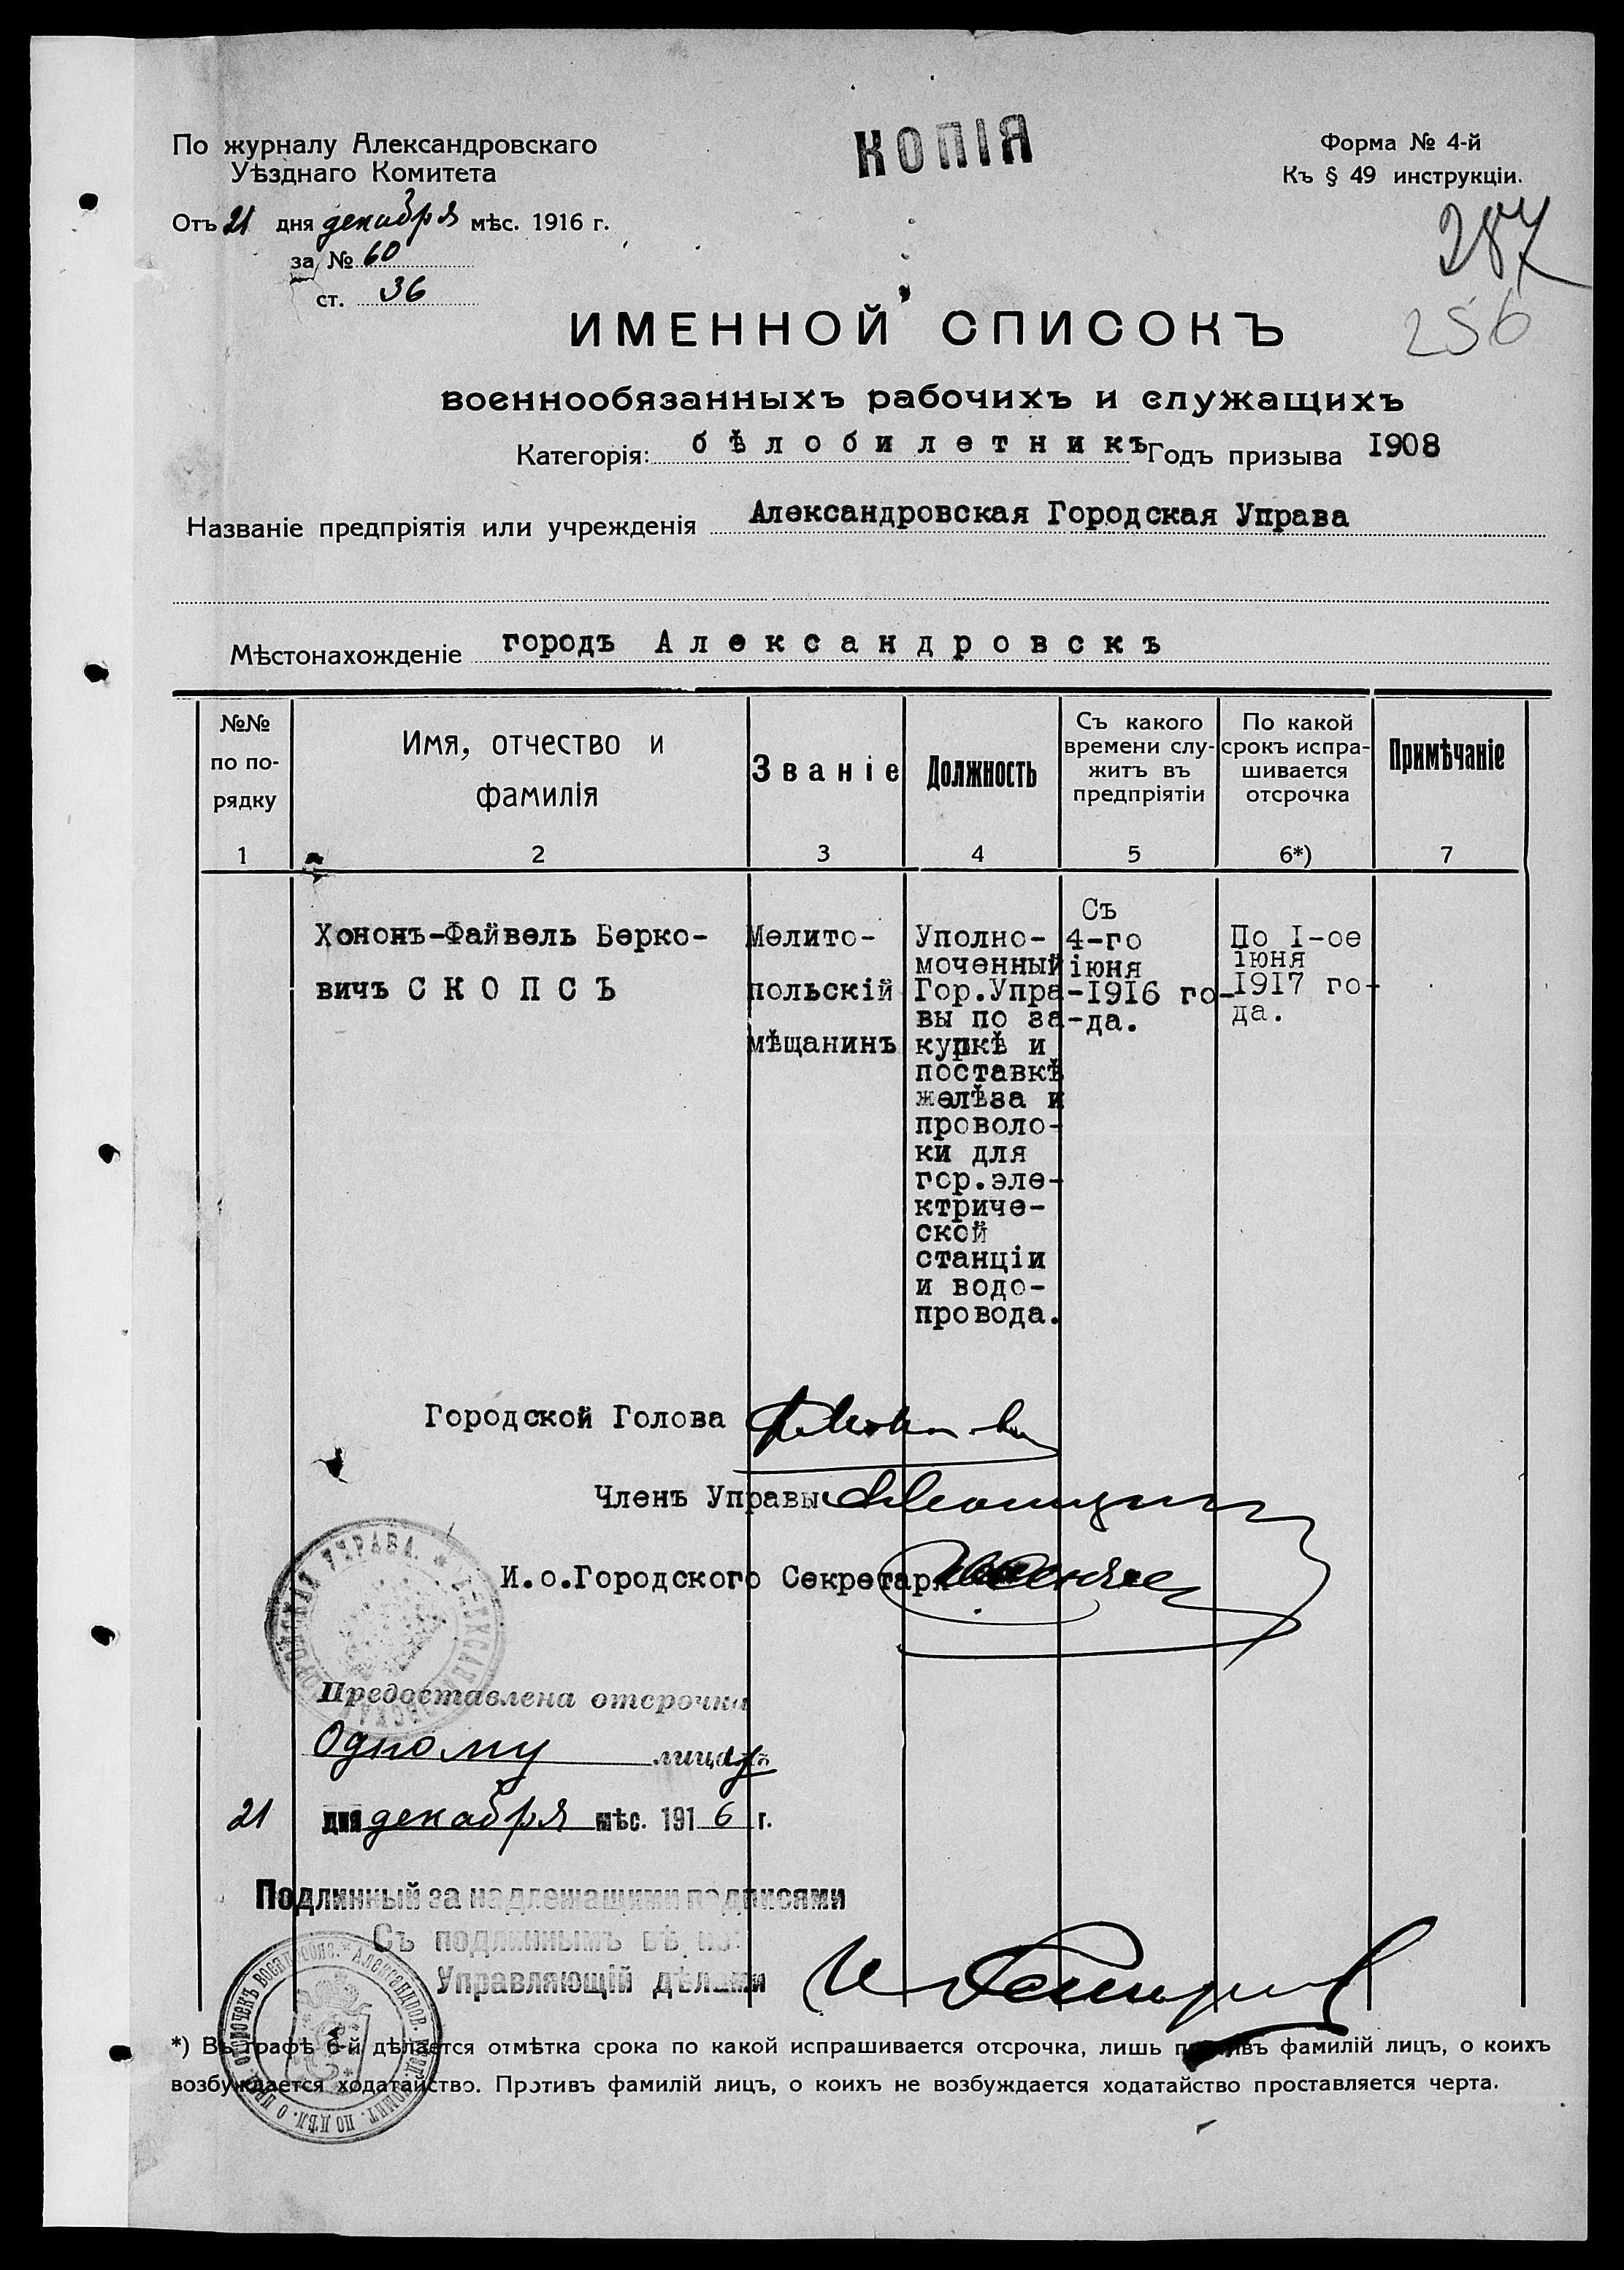 По журналу Александровскаго
Уѣзднаго Комитета
Отъ 21 дня декабря мѣс. 1916 г.
за № 60
ст. 36
КОПІЯ
Форма № 4-й
Къ § 49 инструкціи.
287
256
ИМЕННОЙ СПИСОКЪ
военнообязанныхъ рабочихъ и служащихъ
Категорія: бѣлобилетникъ Годъ призыва 1908
Названіе предпріятія или учрежденія Александровская Городская Управа
Мѣстонахожденіе городъ Александровскъ
№№
по по-
рядку
1
Имя, отчество и
фамилія
2
Званіе
3
Должность
4
Съ какого
времени слу-
житъ въ
предпріятіи
5
По какой
срокъ испра-
шивается
отсрочка
6*)
Примѣчаніе
7
Хононъ-Файвель Берко-
вичъ СКОПСЪ
Мелито-
польскій
мѣщанинъ
Уполно-
моченный
Гор.Упра-
вы по за-
купкѣ и
поставкѣ
желѣза и
проволо-
ки для
гор.эле-
ктриче-
ской
станціи
и водо-
провода.
Съ
4-го
іюня
1916 го-
да.
По I-ое
іюня
1917 го-
да.
Городской Голова
Членъ Управы
И.о.Городского Секретаря
ГОРОДСКАЯ УПРАВА. * АЛЕКСАНДРОВСКАЯ
Предоставлена отсрочка
Одному лицу
21 дня декабря мѣс. 1916 г.
Подлинный за надлежащими подписями
Съ подлиннымъ вѣрно:
Управляющій дѣлами
*) Въ графѣ 6-й дѣлается отмѣтка срока по какой испрашивается отсрочка, лишь противъ фамилій лицъ, о коихъ
возбуждается ходатайство. Противъ фамилій лицъ, о коихъ не возбуждается ходатайство проставляется черта.